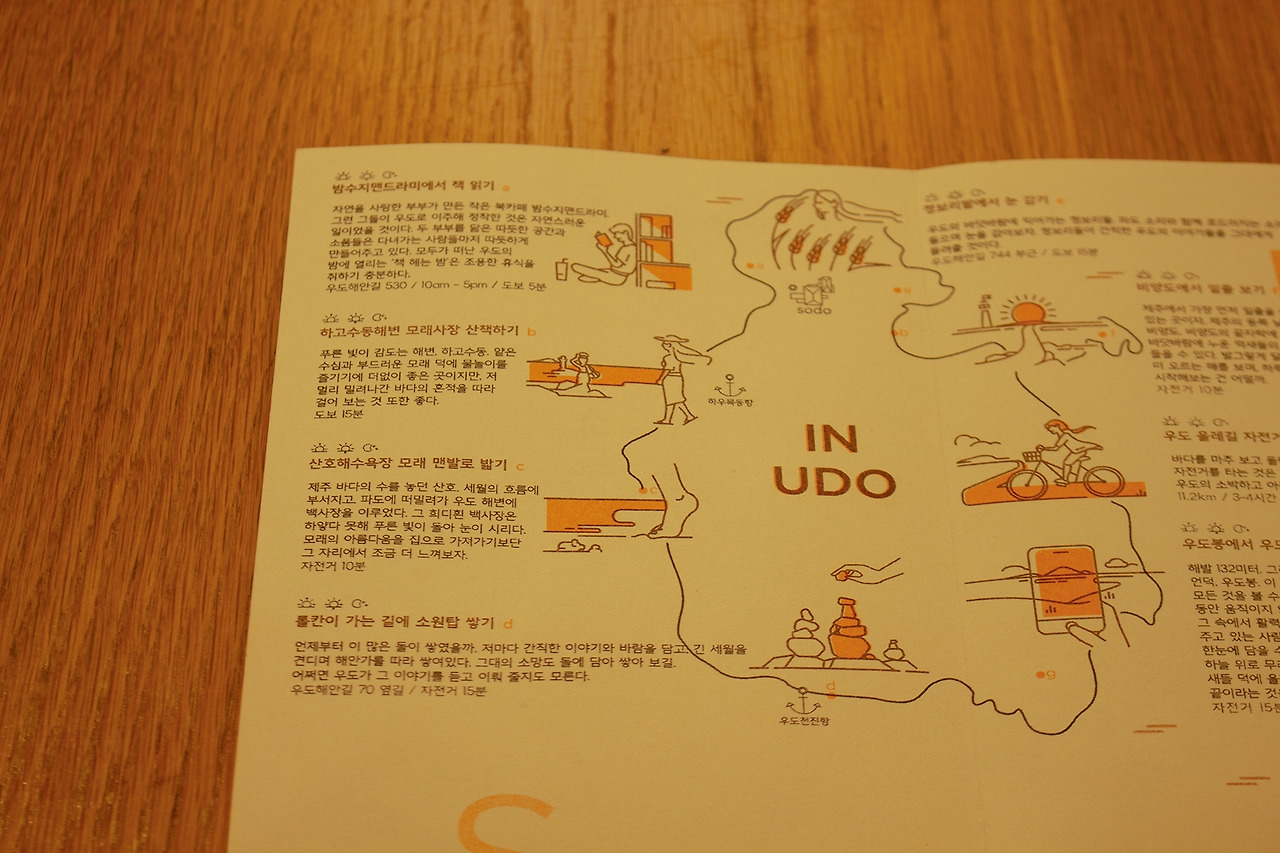 밤수지맨드라미에서 책 읽기 a
자연을 사랑한 부부가 만든 작은 북카페 밤수지맨드라미.
그런 그들이 우도로 이주해 정착한 것은 자연스러운
일이었을 것이다. 두 부부를 닮은 따듯한 공간과
소품들은 다녀가는 사람들마저 따듯하게
만들어주고 있다. 모두가 떠난 우도의
밤에 열리는 '책 헤는 밤'은 조용한 휴식을
취하기 충분하다.
우도해안길 530 / 10am - 5pm / 도보 5분
하고수동해변 모래사장 산책하기 b
푸른 빛이 감도는 해변, 하고수동. 얕은
수심과 부드러운 모래 덕에 물놀이를
즐기기에 더없이 좋은 곳이지만, 저
멀리 밀려나간 바다의 흔적을 따라
걸어 보는 것 또한 좋다.
도보 15분
산호해수욕장 모래 맨발로 밟기 c
제주 바다의 수를 놓던 산호. 세월의 흐름에
부서지고, 파도에 떠밀려가 우도 해변에
백사장을 이루었다. 그 희디흰 백사장은
하얗다 못해 푸른 빛이 돌아 눈이 시리다.
모래의 아름다움을 집으로 가져가기보단
그 자리에서 조금 더 느껴보자.
자전거 10분
톨칸이 가는 길에 소원탑 쌓기 d
언제부터 이 많은 돌이 쌓였을까. 저마다 간직한 이야기와 바람을 담고, 긴 세월을
견디며 해안가를 따라 쌓여있다. 그대의 소망도 돌에 담아 쌓아 보길.
어쩌면 우도가 그 이야기를 듣고 이뤄 줄지도 모른다.
우도해안길 70 옆길 / 자전거 15분
a
sodo
e
b
f
하우목동항
IN
UDO
c
d
g
우도천진항
청보리밭에서 눈 감기 e
우도의 바닷바람에 익어가는 청보리들. 파도 소리와 함께
들으며 눈을 감아보자. 청보리들이 간직한 우도의 이야기들을 그대에게
들려줄 것이다.
우도해안길 744 부근 / 도보 15분
비양도에서 일출 보기 f
제주에서 가장 먼저 일출을
있는 곳이자, 제주의 동쪽
비양도. 비양도의 끝자락에
바닷바람에 누운 억새들의
들을 수 있다. 발그랗게
떠오르는 해를 보며, 하루
시작해보는 건 어떨까.
자전거 10분
우도 올레길 자전거
바다를 마주 보고
자전거를 타는 것은
우도의 소박하고
11.2km / 3-4시간
우도봉에서 우도
해발 132미터. 그
언덕, 우도봉. 이
모든 것을 볼 수
동안 움직이지
그 속에서 활력
주고 있는 사람
한눈에 담을 수
하늘 위로 무리
새들 덕에
끝이라는 것
자전거 15분
S